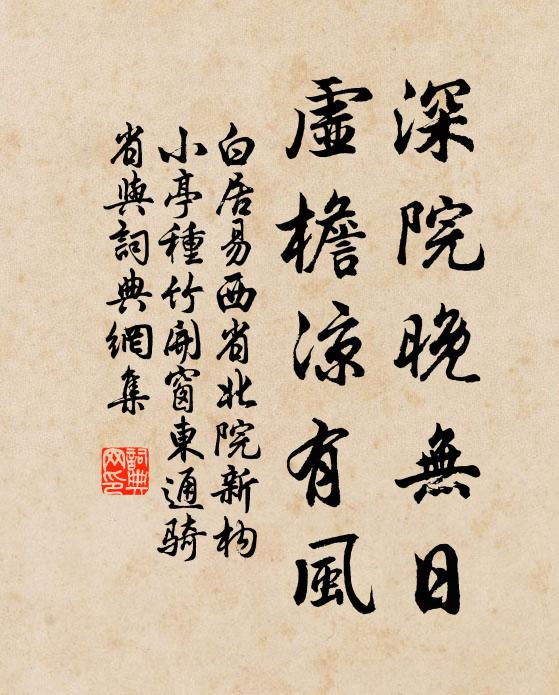 深院晚無日
虛檐涼有風
白居易西省北院新构
小亭種竹開窗東通騎
省與詞典網集
詞典
网印